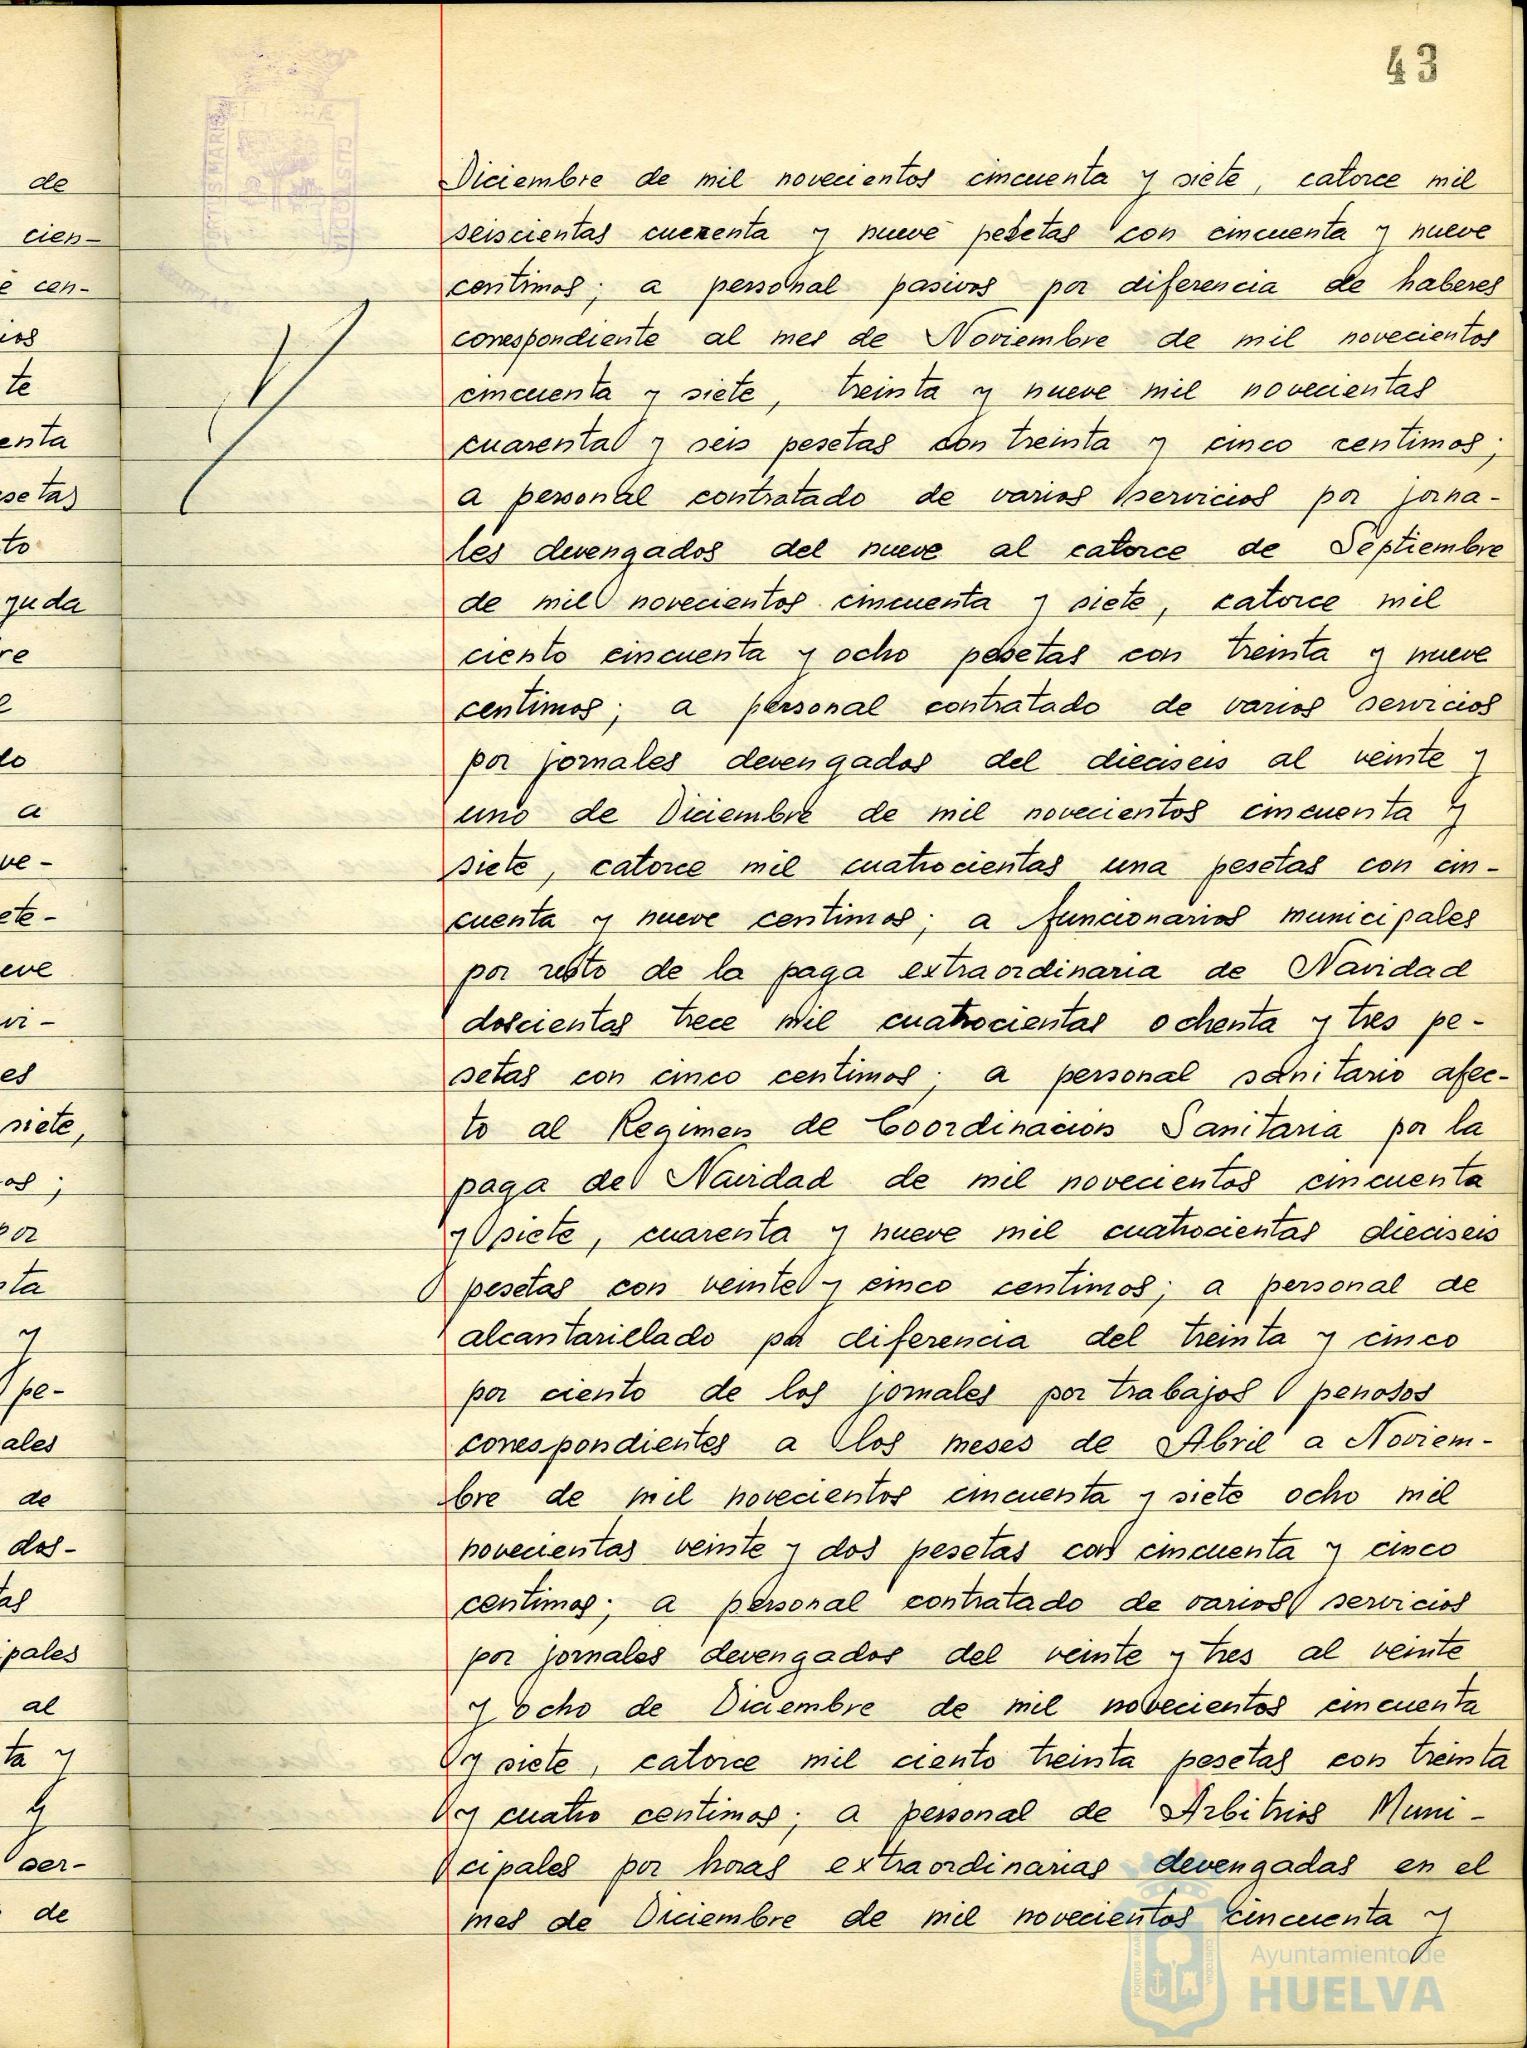 43
Diciembre de mil novecientos cincuenta y siete, catorce mil
seiscientas cuarenta y nueve pesetas con cincuenta y nueve
centimos; a personal pasivos por diferencia de haberes
correspondiente al mes de Noviembre de mil novecientos
cincuenta y siete, treinta y nueve mil novecientas
cuarenta y seis pesetas con treinta y cinco centimos;
a personal contratado de varios servicios por jorna-
les devengados del nueve al catorce de Septiembre
de mil novecientos cincuenta y siete, catorce mil
ciento cincuenta y ocho pesetas con treinta y nueve
centimos; a personal contratado de varios servicios
por jornales devengados del dieciseis al veinte y
uno de Diciembre de mil novecientos cincuenta y
siete, catorce mil cuatrocientas una pesetas con cin-
cuenta y nueve centimos; a funcionarios municipales
por resto de la paga extraordinaria de Navidad
doscientas trece mil cuatrocientas ochenta y tres pe-
setas con cinco centimos; a personal sanitario afec-
to al Regimen de Coordinacion Sanitaria por la
paga de Navidad de mil novecientos cincuenta
y siete, cuarenta y nueve mil cuatrocientas dieciseis
pesetas con veinte y cinco centimos; a personal de
alcantarillado por diferencia del treinta y cinco
por ciento de los jornales por trabajos penosos
correspondientes a los meses de Abril a Noviem-
bre de mil novecientos cincuenta y siete ocho mil
novecientas veinte y dos pesetas con cincuenta y cinco
centimos; a personal contratado de varios servicios
por jornales devengados del veinte y tres al veinte
y ocho de Diciembre de mil novecientos cincuenta
y siete, catorce mil ciento treinta pesetas con treinta
y cuatro centimos; a personal de Arbitrios Muni-
cipales por horas extraordinarias devengadas en el
mes de Diciembre de mil novecientos cincuenta y
Ayuntamiento de
HUELVA
de
cien-
cen-
te
enta
setas
to
yuda
re
do
a
ve-
ete-
eve
vi-
es
siete,
os;
por
ta
y
pe-
ales
de
dos-
tas
ipales
al
ta y
y
ser-
de